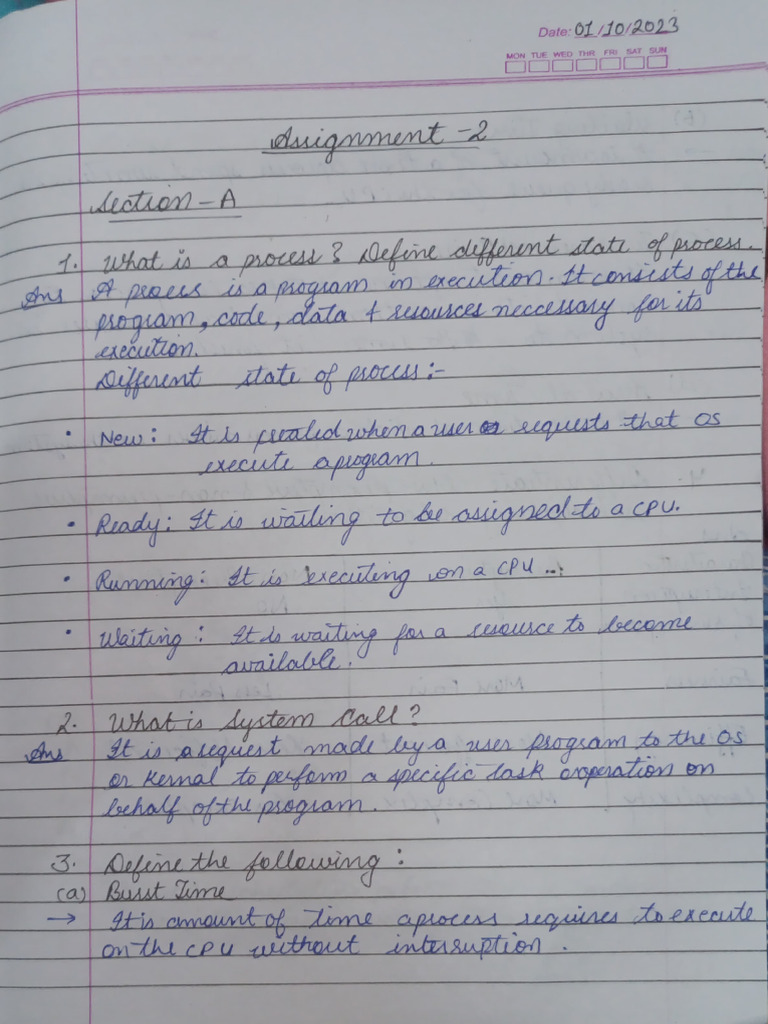 Date: 01/10/2023
MON TUE WED THR FRI SAT SUN
Assignment - 2
Section - A
1. What is a process? Define different state of process.
Ans A process is a program in execution. It consists of the
program, code, data + resources neccessary for its
execution.
Different state of process:-
• New: It is created when a user requests that OS
execute a program.
• Ready: It is waiting to be assigned to a CPU.
• Running: It is executing on a CPU ...
• Waiting: It is waiting for a resource to become
available.
2. What is System Call?
Ans It is a request made by a user program to the OS
or Kernal to perform a specific task or operation on
behalf of the program.
3. Define the following:
(a) Burst Time
→ It is amount of time a process requires to execute
on the CPU without interruption.